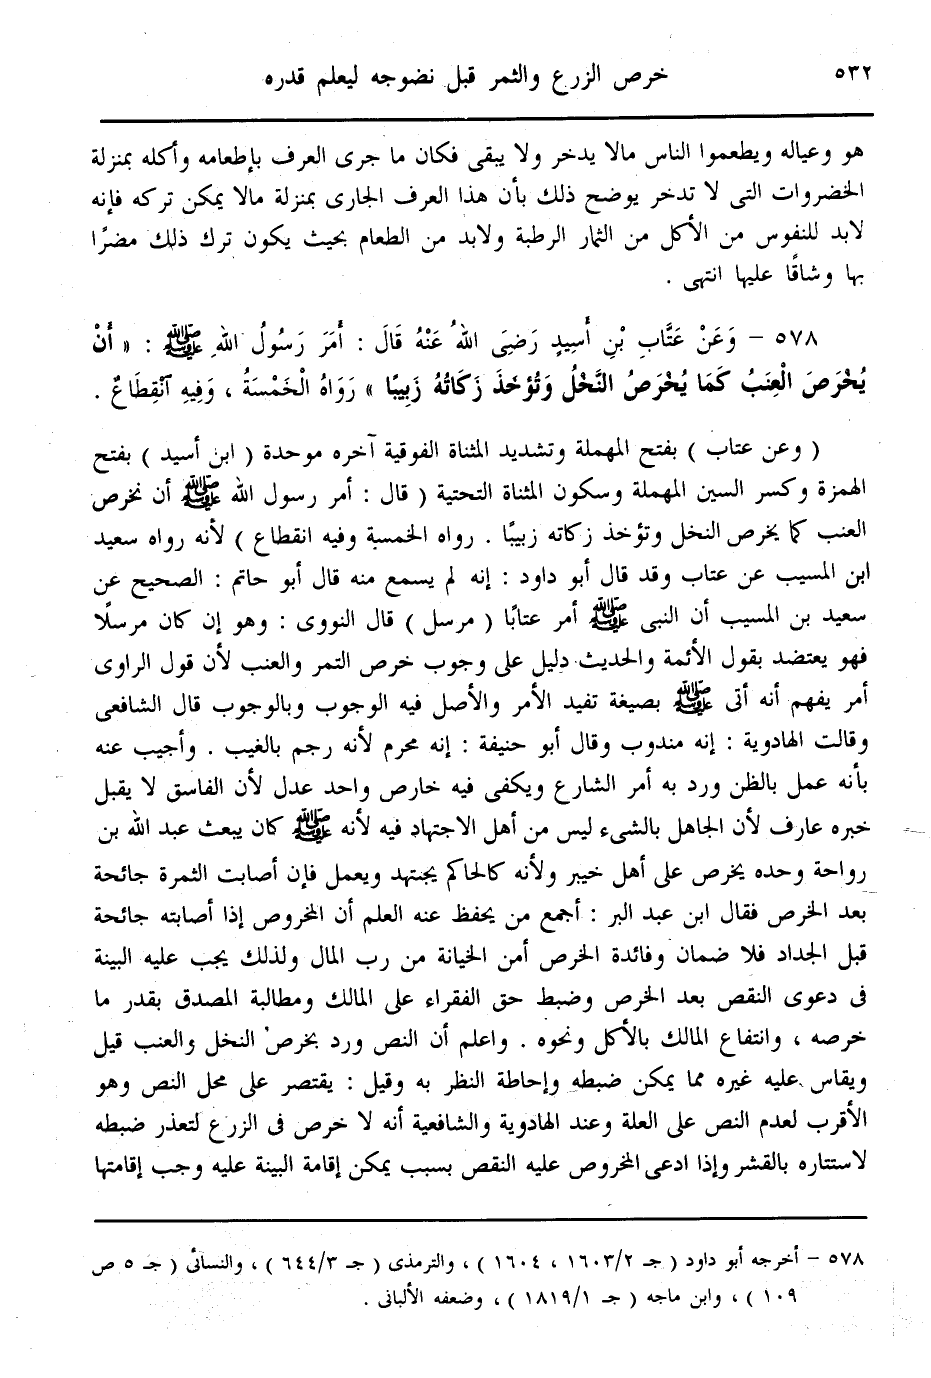 ٥٣٢
خرص الزرع والثمر قبل نضوجه ليعلم قدره
هو وعياله ويطعموا الناس مالا يدخر ولا يبقى فكان ما جرى العرف بإطعامه وأكله بمنزلة
الخضروات التى لا تدخر يوضح ذلك بأن هذا العرف الجارى بمنزلة مالا يمكن تركه فإنه
لابد للنفوس من الأكل من الثمار الرطبة ولابد من الطعام بحيث يكون ترك ذلك مضرًا
بها وشاقًا عليها انتهى .
٥٧٨ – وَعَنْ عَتَّابِ بْنِ أَسِيدٍ رَضِىَ اللهُ عَنْهُ قَالَ : أَمَرَ رَسُولُ اللهِ ﷺ : « أَنْ
يُخْرَصَ الْعِنَبُ كَمَا يُخْرَصُ النَّخْلُ وَتُؤخَذَ زَكَاتُهُ زَبِيبًا » رَوَاهُ الْخَمْسَةُ ، وَفِيهِ آنْقِطَاعٌ .
( وعن عتاب ) بفتح المهملة وتشديد المثناة الفوقية آخره موحدة ( ابن أسيد ) بفتح
الهمزة وكسر السين المهملة وسكون المثناة التحتية ( قال : أمر رسول الله ﷺ أن نخرص
العنب كما يخرص النخل وتؤخذ زكاته زبيبًا . رواه الخمسة وفيه انقطاع ) لأنه رواه سعيد
ابن المسيب عن عتاب وقد قال أبو داود : إنه لم يسمع منه قال أبو حاتم : الصحيح عن
سعيد بن المسيب أن النبى ﷺ أمر عتابًا ( مرسل ) قال النووى : وهو إن كان مرسلًا
فهو يعتضد بقول الأئمة والحديث دليل على وجوب خرص التمر والعنب لأن قول الراوى
أمر يفهم أنه أتى ﷺ بصيغة تفيد الأمر والأصل فيه الوجوب وبالوجوب قال الشافعى
وقالت الهادوية : إنه مندوب وقال أبو حنيفة : إنه محرم لأنه رجم بالغيب . وأجيب عنه
بأنه عمل بالظن ورد به أمر الشارع ويكفى فيه خارص واحد عدل لأن الفاسق لا يقبل
خبره عارف لأن الجاهل بالشىء ليس من أهل الاجتهاد فيه لأنه ﷺ كان يبعث عبد الله بن
رواحة وحده يخرص على أهل خيبر ولأنه كالحاكم يجتهد ويعمل فإن أصابت الثمرة جائحة
بعد الخرص فقال ابن عبد البر : أجمع من يحفظ عنه العلم أن المخروص إذا أصابته جائحة
قبل الجداد فلا ضمان وفائدة الخرص أمن الخيانة من رب المال ولذلك يجب عليه البينة
فى دعوى النقص بعد الخرص وضبط حق الفقراء على المالك ومطالبة المصدق بقدر ما
خرصه ، وانتفاع المالك بالأكل ونحوه . واعلم أن النص ورد بخرص النخل والعنب قيل
ويقاس عليه غيره مما يمكن ضبطه وإحاطة النظر به وقيل : يقتصر على محل النص وهو
الأقرب لعدم النص على العلة وعند الهادوية والشافعية أنه لا خرص فى الزرع لتعذر ضبطه
لاستتاره بالقشر وإذا ادعى المخروص عليه النقص بسبب يمكن إقامة البينة عليه وجب إقامتها
٥٧٨ – أخرجه أبو داود ( جـ ١٦٠٣/٢ ، ١٦٠٤ ) ، والترمذى ( جـ ٦٤٤/٣ ) ، والنسائى ( جـ ٥ ص
١٠٩ ) ، وابن ماجه ( جـ ١٨١٩/١ ) ، وضعفه الألبانى .